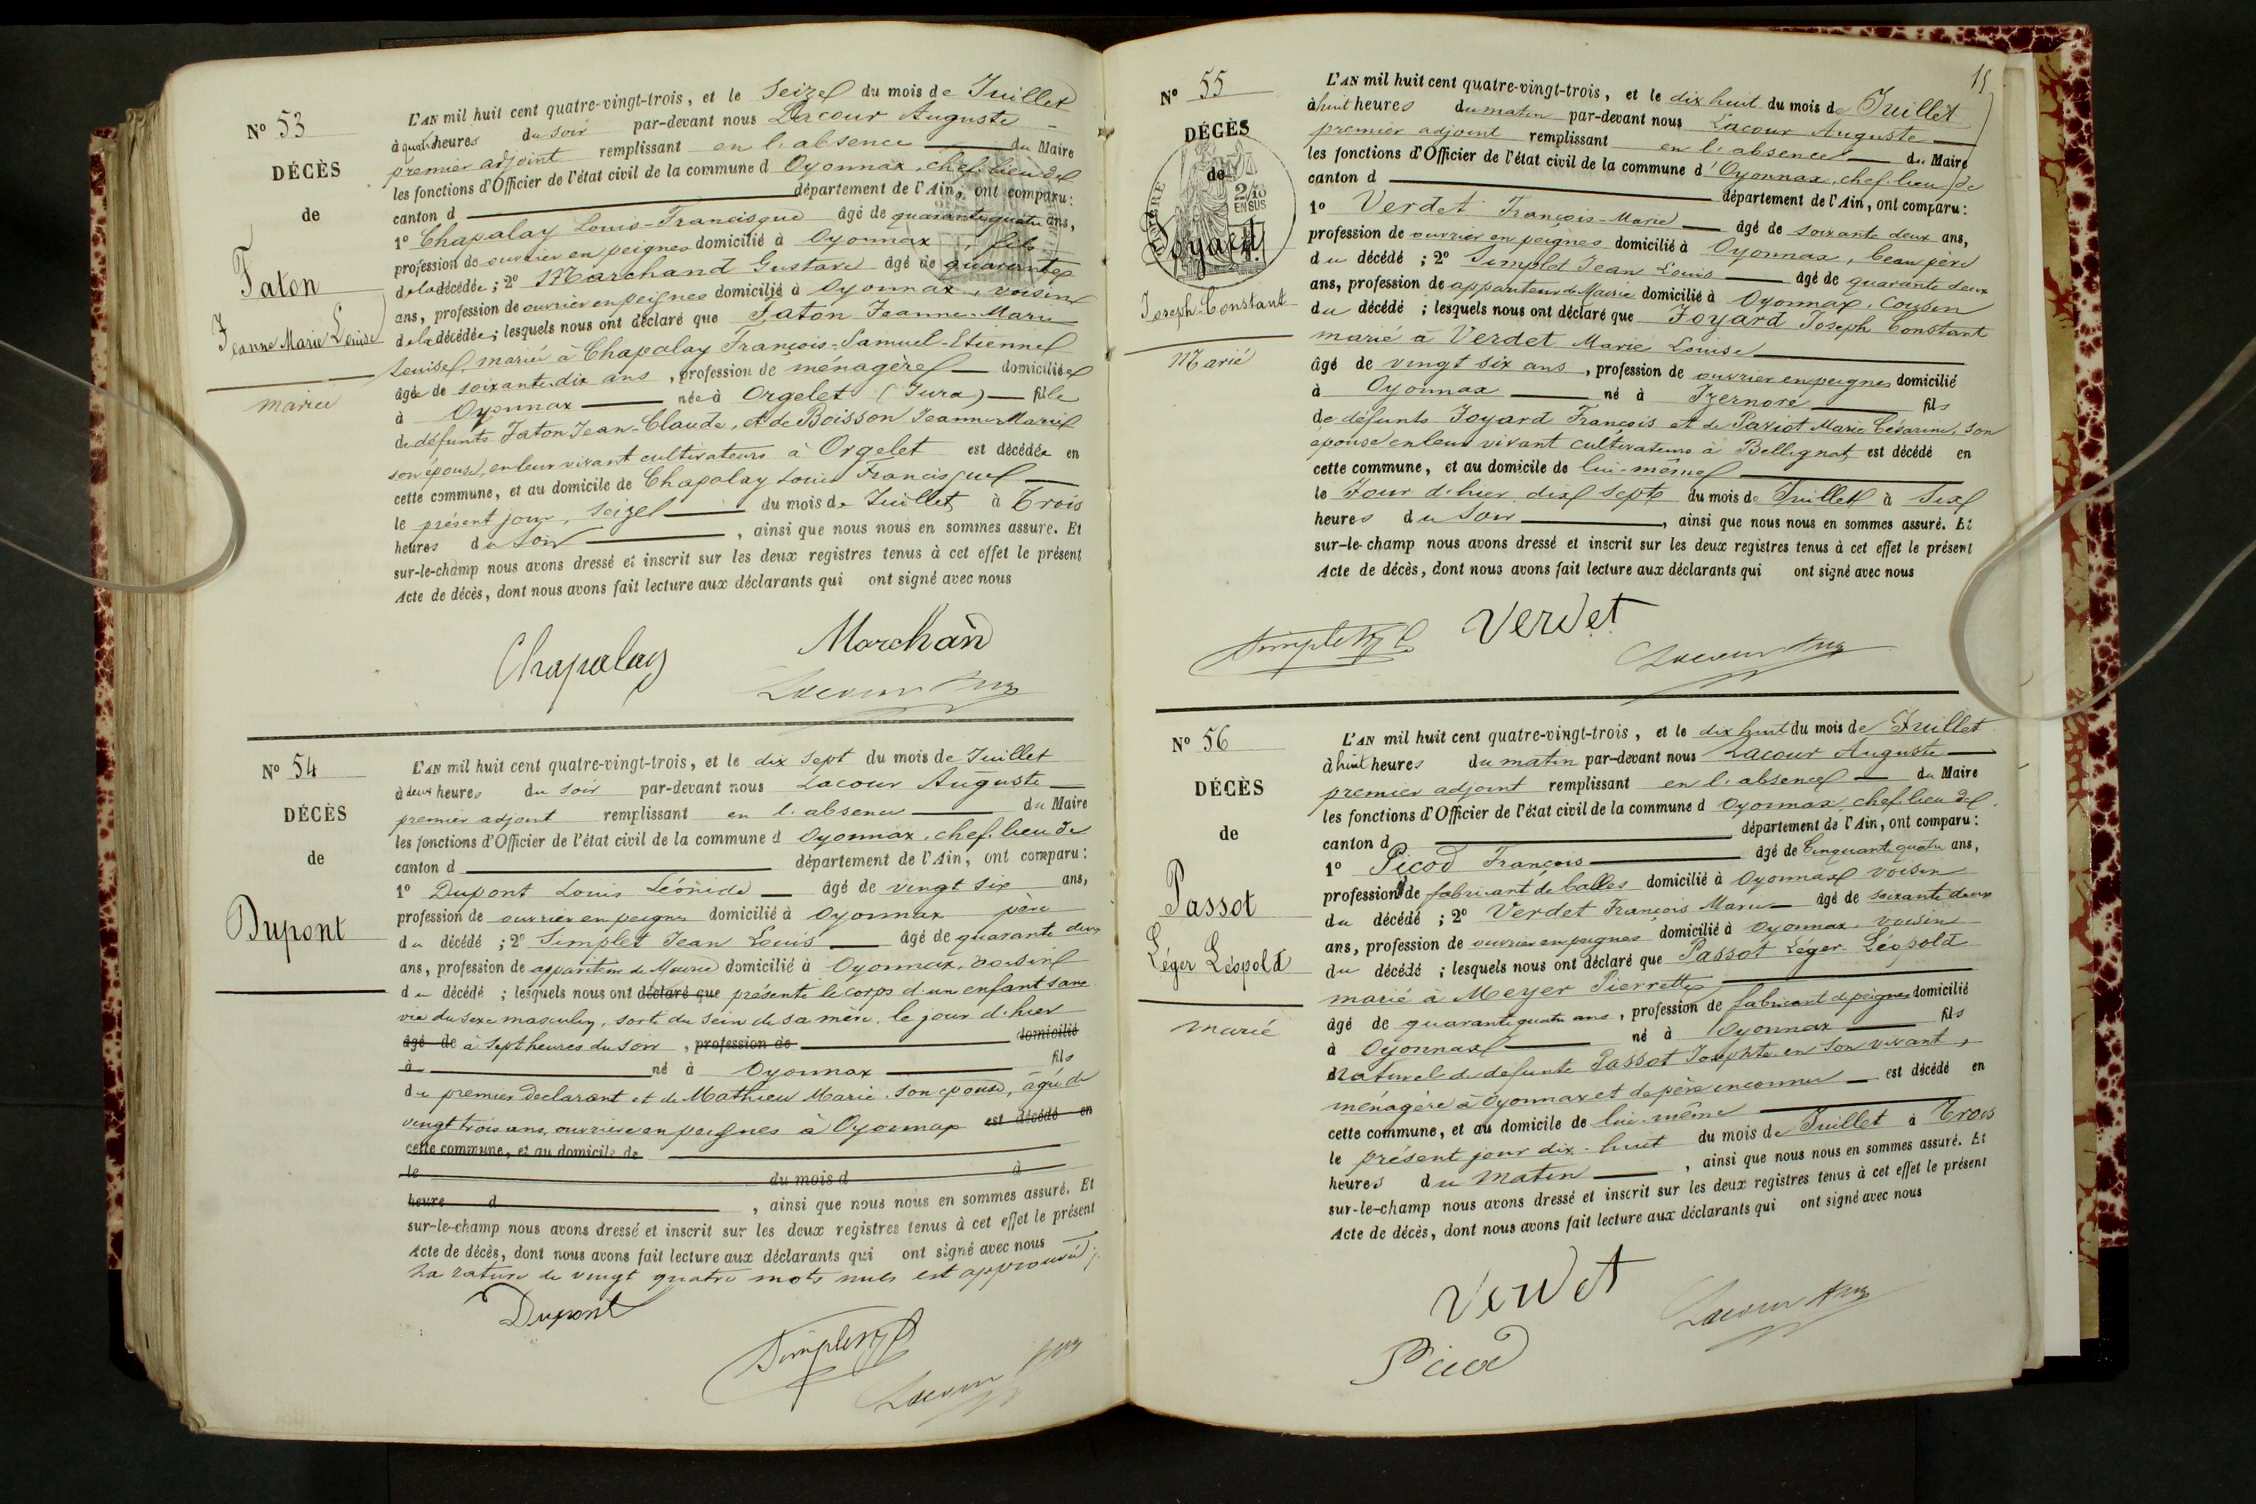 N° 53
DÉCÈS
de
Faton
Jeanne Marie Louise
mariée
L'AN mil huit cent quatre-vingt-trois, et le Seize du mois de Juillet
à quatre heures du soir par-devant nous Lacour Auguste
premier adjoint remplissant en l'absence du Maire
les fonctions d'Officier de l'état civil de la commune d Oyonnax, chef-lieu de
canton d département de l'Ain, ont comparu :
1° Chapalay Louis-Francisque âgé de quarante quatre ans,
profession de ouvrier en peignes domicilié à Oyonnax, fils
de la décédée ; 2° Marchand Gustave âgé de quarante
ans, profession de ouvrier en peignes domicilié à Oyonnax, voisin
de la décédée ; lesquels nous ont déclaré que Faton Jeanne-Marie
Louise, mariée à Chapalay François-Samuel-Etienne
âgée de soixante dix ans, profession de ménagère domiciliée
à Oyonnax née à Orgelet (Jura) fille
de défunts Faton Jean-Claude, et de Boisson Jeanne Marie
son épouse, en leur vivant cultivateurs à Orgelet est décédée en
cette commune, et au domicile de Chapalay Louis Francisque
le présent jour, seize du mois de Juillet à Trois
heures du Soir, ainsi que nous nous en sommes assuré. Et
sur-le-champ nous avons dressé et inscrit sur les deux registres tenus à cet effet le présent
Acte de décès, dont nous avons fait lecture aux déclarants qui ont signé avec nous
Chapalay Marchand
Lacour Aug
N° 54
DÉCÈS
de
Dupont
L'AN mil huit cent quatre-vingt-trois, et le dix sept du mois de Juillet
à deux heures du soir par-devant nous Lacour Auguste
premier adjoint remplissant en l'absence du Maire
les fonctions d'Officier de l'état civil de la commune d Oyonnax, chef-lieu de
canton d département de l'Ain, ont comparu :
1° Dupont Louis Léonide âgé de vingt six ans,
profession de ouvrier en peignes domicilié à Oyonnax père
du décédé ; 2° Simplet Jean Louis âgé de quarante deux
ans, profession de appariteur de Mairie domicilié à Oyonnax, voisin
du décédé ; lesquels nous ont déclaré que présenté le corps d'un enfant sans
vie du sexe masculin, sorti du sein de sa mère, le jour d'hier
âgé de à sept heures du soir, profession de domicilié
à né à Oyonnax fils
du premier déclarant et de Mathieu Marie, son épouse, âgée de
vingt trois ans, ouvrière en peignes à Oyonnax est décédé en
cette commune, et au domicile de
le du mois d à
heure d, ainsi que nous nous en sommes assuré. Et
sur-le-champ nous avons dressé et inscrit sur les deux registres tenus à cet effet le présent
Acte de décès, dont nous avons fait lecture aux déclarants qui ont signé avec nous
La rature de vingt quatre mots nuls est approuvée
Dupont
Simplet
Lacour Aug
15
N° 55
DÉCÈS
de
2/10
EN SUS
Joyard
Joseph-Constant
Marié
L'AN mil huit cent quatre-vingt-trois, et le dix huit du mois de Juillet
à huit heures du matin par-devant nous Lacour Auguste
premier adjoint remplissant en l'absence du Maire
les fonctions d'Officier de l'état civil de la commune d'Oyonnax, chef-lieu de
canton d département de l'Ain, ont comparu :
1° Verdet François-Marie âgé de soixante deux ans,
profession de ouvrier en peignes domicilié à Oyonnax, beau père
du décédé ; 2° Simplet Jean Louis âgé de quarante deux
ans, profession de appariteur de Mairie domicilié à Oyonnax, Cousin
du décédé ; lesquels nous ont déclaré que Joyard Joseph Constant
marié à Verdet Marie Louise
âgé de vingt six ans, profession de ouvrier en peignes domicilié
à Oyonnax né à Izernore fils
de défunts Joyard François et de Pariot Marie Césarine, son
épouse en leur vivant cultivateurs à Bellignat, est décédé en
cette commune, et au domicile de lui-même
le Jour d'hier dix sept du mois de Juillet à Six
heures du Soir, ainsi que nous nous en sommes assuré. Et
sur-le-champ nous avons dressé et inscrit sur les deux registres tenus à cet effet le présent
Acte de décès, dont nous avons fait lecture aux déclarants qui ont signé avec nous
Simplet Verdet
Lacour Aug
N° 56
DÉCÈS
de
Passot
Léger Léopold
marié
L'AN mil huit cent quatre-vingt-trois, et le dix huit du mois de Juillet
à huit heures du matin par-devant nous Lacour Auguste
premier adjoint remplissant en l'absence du Maire
les fonctions d'Officier de l'état civil de la commune d Oyonnax chef-lieu de
canton d département de l'Ain, ont comparu :
1° Picod François âgé de Cinquante quatre ans,
profession de fabricant de balles domicilié à Oyonnax voisin
du décédé ; 2° Verdet François Marie âgé de soixante deux
ans, profession de ouvrier en peignes domicilié à Oyonnax, voisin
du décédé ; lesquels nous ont déclaré que Passot Léger Léopold
marié à Meyer Pierrette
âgé de quarante quatre ans, profession de fabricant de peignes domicilié
à Oyonnax né à Oyonnax fils
naturel de défunte Passot Josephte en son vivant,
ménagère à Oyonnax et de père inconnu est décédé en
cette commune, et au domicile de lui-même
le présent jour dix-huit du mois de Juillet à Trois
heures du matin, ainsi que nous nous en sommes assuré. Et
sur-le-champ nous avons dressé et inscrit sur les deux registres tenus à cet effet le présent
Acte de décès, dont nous avons fait lecture aux déclarants qui ont signé avec nous
Verdet
Lacour Aug
Picod